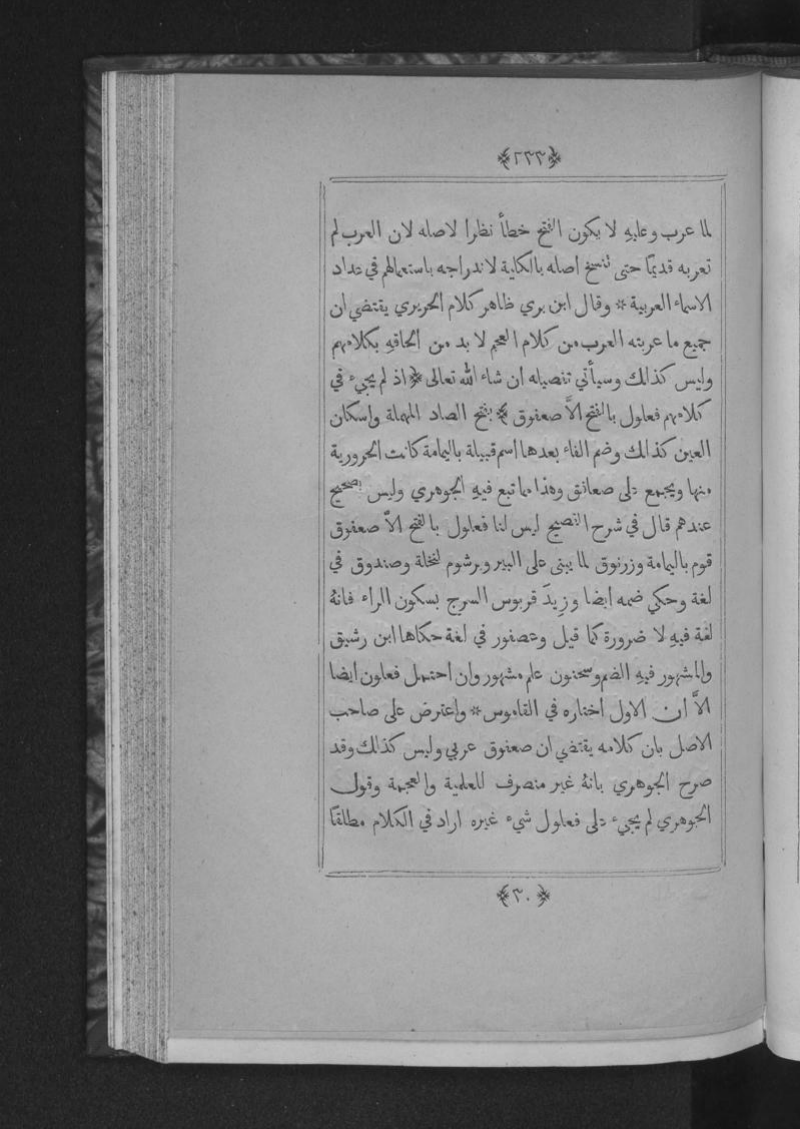 ﴿٢٣٣﴾
لما عرب وعليهِ لا يكون الفتح خطأ نظرا لاصله لان العرب لم
تعربه قديمًا حتى تنسخ اصله بالكلية لاندراجه باستعمالهم في عداد
الاسماء العربية * وقال ابن بري ظاهر كلام الحريري يقتضي ان
جميع ما عربته العرب من كلام العجم لا بد من الحاقهِ بكلامهم
وليس كذلك وسيأتي تفصيله ان شاء الله تعالى ﴿ اذ لم يجيء في
كلامهم فعلول بالفتح الاَّ صعفوق ﴾ بفتح الصاد المهملة واسكان
العين كذلك وضم الفاء بعدها اسم قبيلة باليمامة كانت الحرورية
منها ويجمع على صعافق وهذا مما تبع فيهِ الجوهري وليس بصحيح
عندهم قال في شرح الفصيح ليس لنا فعلول بالفتح الاَّ صعفوق
قوم باليمامة وزرنوق لما يبنى على البير وبرشوم لنخلة وصندوق في
لغة وحكي ضمه ايضا وزِيدَ قربوس السرج بسكون الراء فانهُ
لغة فيهِ لا ضرورة كما قيل وعصفور في لغة حكاها ابن رشيق
والمشهور فيهِ الضم وسحنون علم مشهور وان احتمل فعلون ايضا
الاَّ ان الاول اختاره في القاموس * واعترض على صاحب
الاصل بان كلامه يقتضي ان صعفوق عربي وليس كذلك وقد
صرح الجوهري بانهُ غير منصرف للعلمية والعجمة وقول
الجوهري لم يجيء على فعلول شيء غيره اراد في الكلام مطلقًا
﴿٣٠﴾